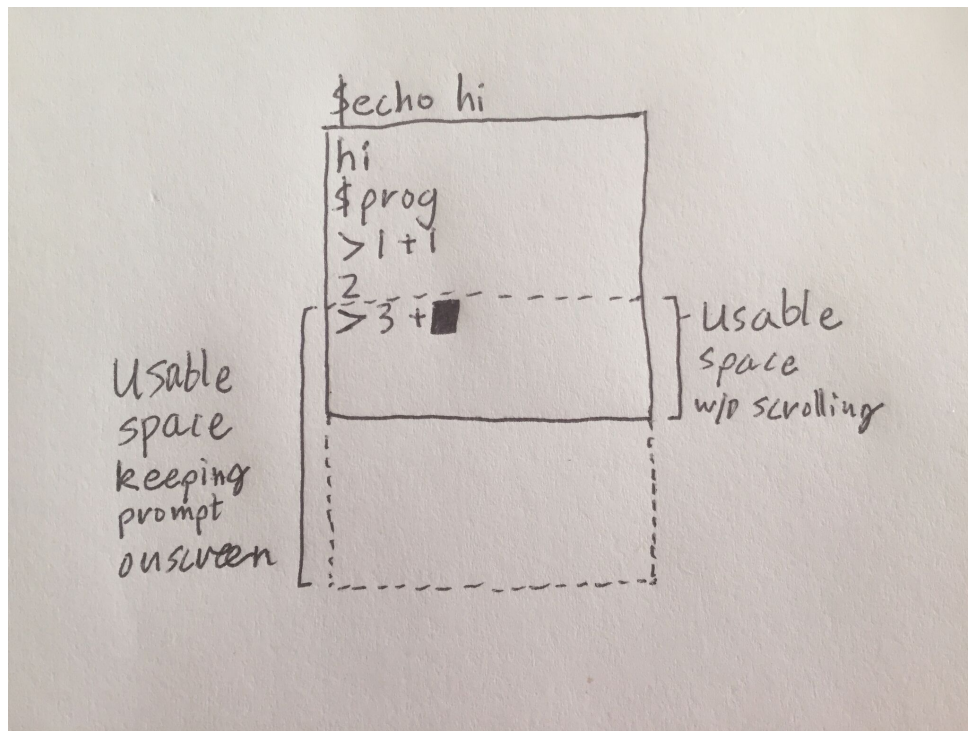 $echo hi
hi
$prog
>1+1
2
>3+
Usable
space
w/o scrolling
Usable
space
keeping
prompt
onscreen